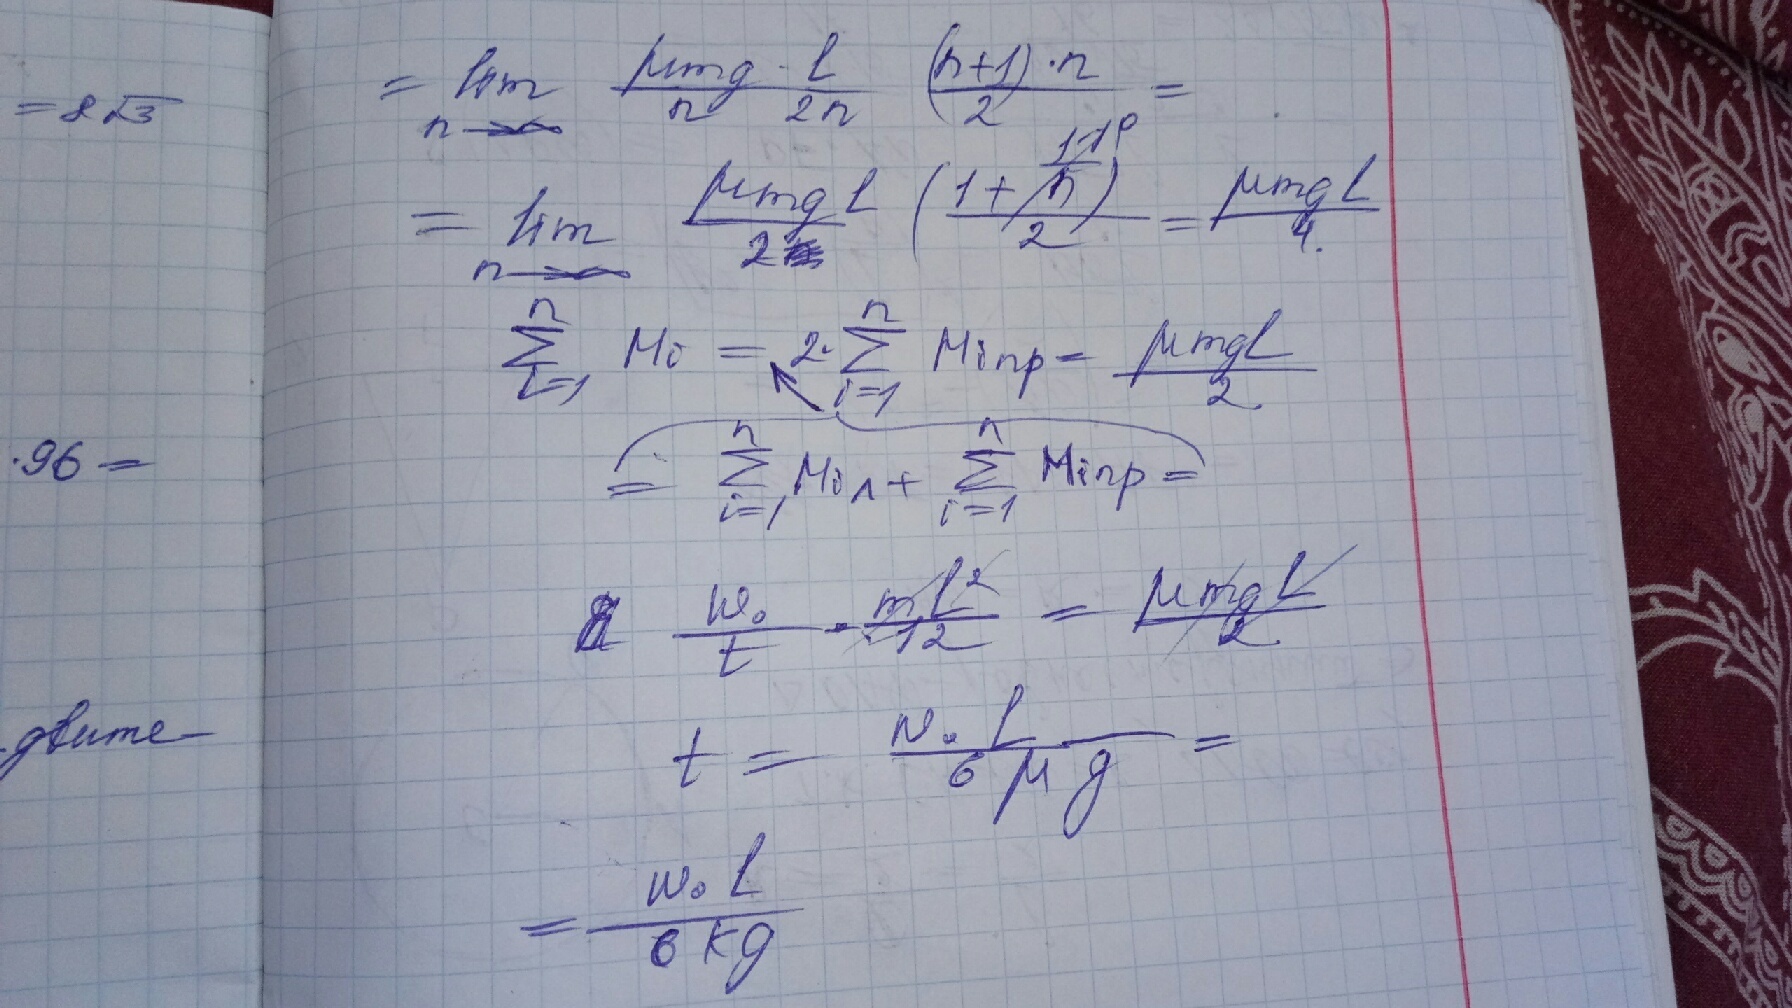 = 8√3
·96 =
-двите-
= lim n→∞ μmg/n · L/2n (n+1)·n/2 =
= lim n→∞ μmgL/2 (1+1/n)/2 = μmgL/4.
∑ i=1 n Mi = 2·∑ i=1 n Mi пр = μmgL/2
= ∑ i=1 n Mi л + ∑ i=1 n Mi пр =
w₀/t · mL²/12 = μmgL/2
t = w₀L/6μg =
= w₀L/6kg